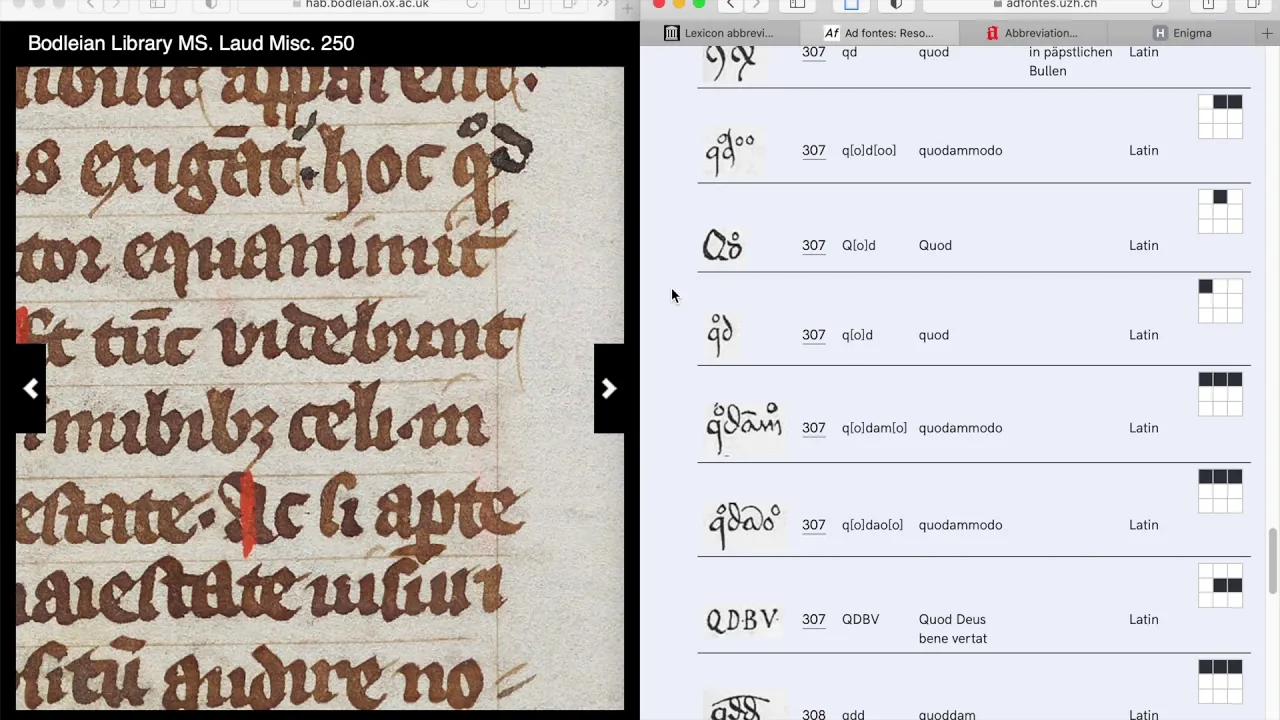 hab.bodleian.ox.ac.uk
Bodleian Library MS. Laud Misc. 250
s exigāt. hoc qd
tor equanimit
st tūc videbunt
nubibꝫ celi. in
estate. Ac si apte
maiestate uisuri
sitū audire no
adfontes.uzh.ch
Lexicon abbrevi...
Af Ad fontes: Reso...
a Abbreviation...
H Enigma
307 qd quod in päpstlichen Bullen Latin
307 q[o]d[oo] quodammodo Latin
307 Q[o]d Quod Latin
307 q[o]d quod Latin
307 q[o]dam[o] quodammodo Latin
307 q[o]dao[o] quodammodo Latin
QDBV 307 QDBV Quod Deus bene vertat Latin
308 qdd quoddam Latin